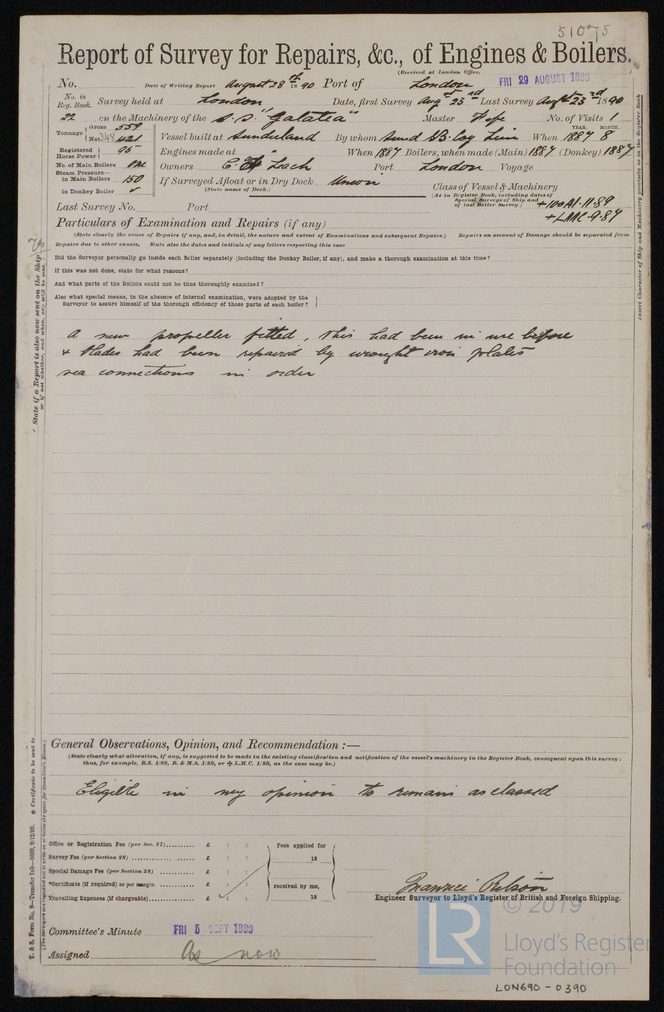 51075
Report of Survey for Repairs, &c., of Engines & Boilers.
(Received at London Office,
No. Date of Writing Report August 28th 1890 Port of London FRI 29 AUGUST 1890
No. in Reg. Book. Survey held at London Date, first Survey Aug 23rd Last Survey Augt 23rd 1890
22 on the Machinery of the S.S. "Galatea" Master No. of Visits 1
Tonnage Gross 559 Net 348 421 Vessel built at Sunderland By whom Sund S.B. Coy Lim When YEAR. 1887 MONTH. 8
Registered Horse Power 95 Engines made at " When 1887 Boilers, when made (Main) 1887 (Donkey) 1887
No. of Main Boilers one Owners Port London Voyage
Steam Pressure— in Main Boilers 150 If Surveyed Afloat or in Dry Dock Union Class of Vessel & Machinery
in Donkey Boiler (State name of Dock.) (As in Register Book, including dates of Special Surveys of Ship and of last Boiler Survey.) +100A1-11-89
Last Survey No. Port +LMC-9-87
Particulars of Examination and Repairs (if any)
(State clearly the cause of Repairs if any, and, in detail, the nature and extent of Examinations and subsequent Repairs.) Repairs on account of Damage should be separated from
Repairs due to other causes. State also the dates and initials of any letters respecting this case
Did the Surveyor personally go inside each Boiler separately (including the Donkey Boiler, if any), and make a thorough examination at this time?
If this was not done, state for what reasons?
And what parts of the Boilers could not be thus thoroughly examined?
Also what special means, in the absence of internal examination, were adopted by the
Surveyor to assure himself of the thorough efficiency of those parts of each boiler?
A new propeller fitted, this had been in use before
& blades had been repaired by wrought iron plates
sea connections in order
General Observations, Opinion, and Recommendation :—
(State clearly what alteration, if any, is suggested to be made in the existing classification and notification of the vessel's machinery in the Register Book, consequent upon this survey:
thus, for example, B.S. 1/89, B. & M.S. 1/89, or + L.M.C. 1/89, as the case may be.)
Eligible in my opinion to remain as classed
Office or Registration Fee (per Sec. 27) £ : : Fees applied for
Survey Fee (per Section 28) £ : : 18
Special Damage Fee (per Section 28) £ : :
*Certificate (if required) as per margin £ : : received by me,
Travelling Expenses (if chargeable) £ : : 18
Engineer Surveyor to Lloyd's Register of British and Foreign Shipping.
© 2019
Committee's Minute FRI 5 SEPT 1890
Assigned As now
LR
Lloyd's Register
Foundation
LON690-0390
State if a Report is also now sent on the Ship
or if not, whether, and when, one will be sent.
Insert Character of Ship and Machinery precisely as in the Register Book
* Certificate to be sent to